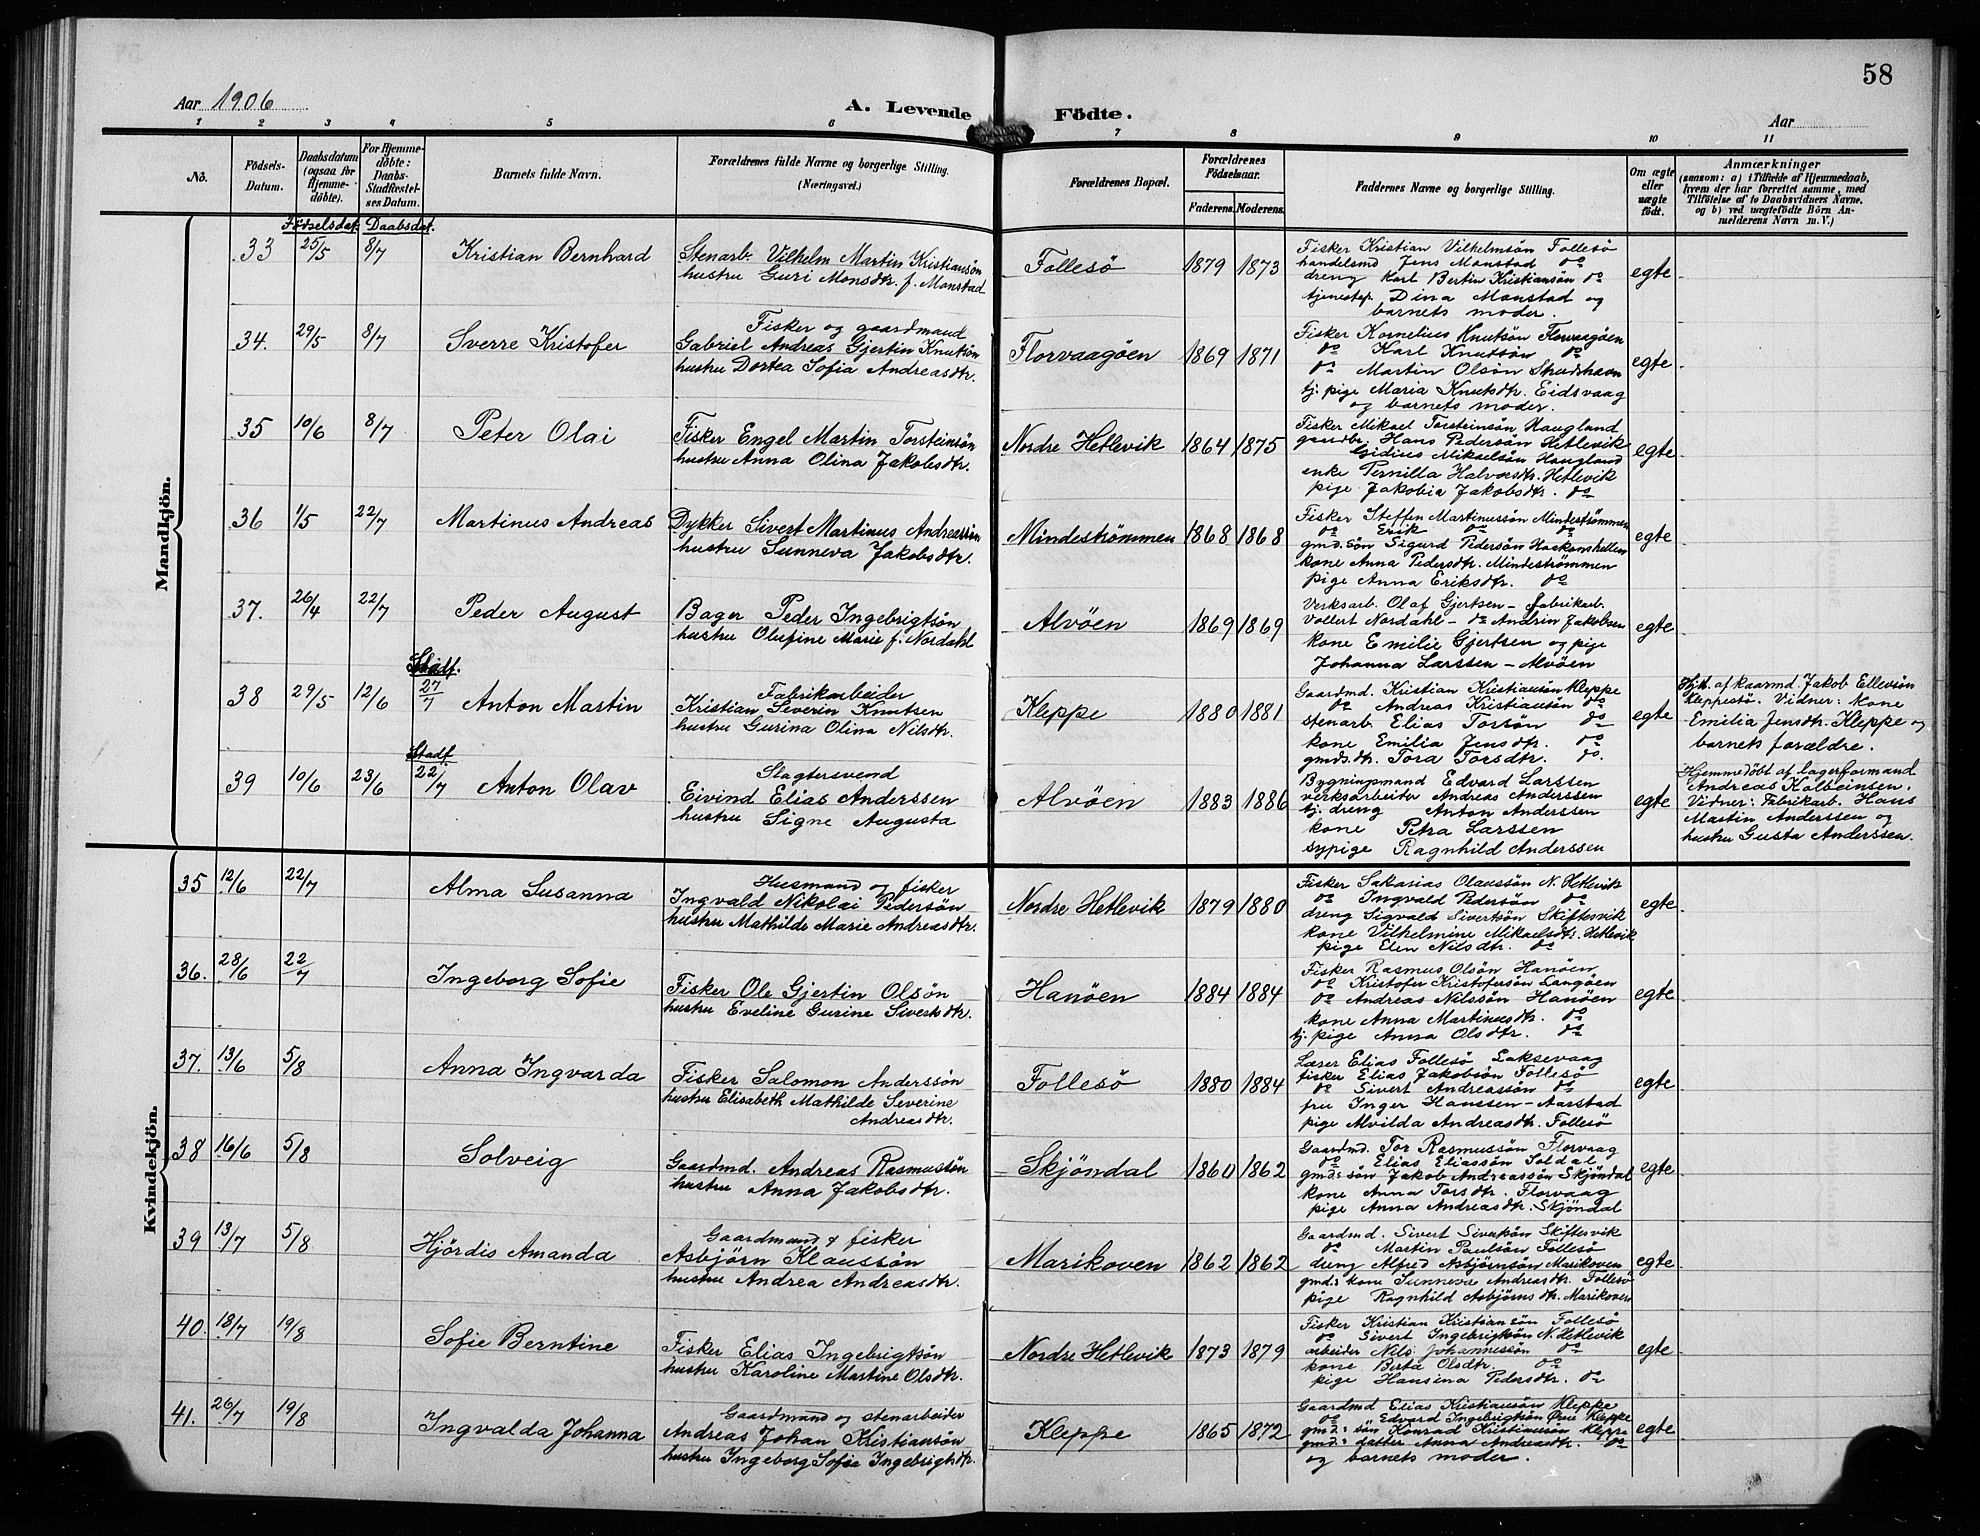 58
Aar 1906
A. Levende Födte.
Aar
1 2 3 4 5 6 7 8 9 10 11
No.
Födsels-Datum.
Daabsdatum (ogsaa for Hjemme-döbte).
For Hjemme-döbte: Daabs-Stadfæstel-ses Datum.
Barnets fulde Navn.
Forældrenes fulde Navne og borgerlige Stilling. (Næringsvei.)
Forældrenes Bopæl.
Forældrenes Födselsaar.
Faderens. Moderens.
Faddernes Navne og borgerlige Stilling.
Om ægte eller uægte födt.
Anmærkninger
(saasom: a) i Tilfælde af Hjemmedaab,
hvem der har forrettet samme, med
Tilföielse af to Daabsvidners Navne,
og b) ved uægtefödte Börn An-
melderens Navn m. V.)
Födselsdat. Daabsdat.
Mandkjön.
33 25/5 8/7 Kristian Bernhard
Stenarb. Vilhelm Martin Kristiansön
hustru Guri Monsdtr. f. Monstad
Follesö 1879 1873
Fisker Kristian Vilhelmsön Follesö
handelsmd Jens Monstad do
dreng Karl Bertin Kristiansön do
tjenestep. Dina Monstad og
barnets moder.
egte
34. 29/5 8/7 Sverre Kristofer
Fisker og gaardmand
Gabriel Andreas Gjertin Knutsön
hustru Dortea Sofia Andreasdtr.
Florvaagöen 1869 1871
Fisker Kornelius Knutsön Florvaagöen
do Karl Knutsön do
do Martin Olsön Skudshavn
tj. pige Maria Knutsdtr. Eidsvaag
og barnets moder.
egte
35 10/6 8/7 Peter Olai
Fisker Engel Martin Torsteinsön
hustru Anna Olina Jakobsdtr.
Nordre Hetlevik 1864 1875
Fisker Mikael Torsteinsön Haugland
gaardbr. Hans Pedersön Hetlevik
Gidius Mikaelsön Haugland
enke Pernilla Halvorsdtr. Hetlevik
pige Jakobia Jakobsdtr. do
egte
36 1/5 22/7 Martinus Andreas
Dykker Sivert Martinus Andreassön
hustru Sunneva Jakobsdtr.
Mindeströmmen 1868 1868
Fisker Steffen Martinussön Mindeströmmen
do Erik do do
gmd. sön Sigurd Pedersön Haakonshellen
kone Anna Pedersdtr. Mindeströmmen
pige Anna Eriksdtr. do
egte
37. 26/4 22/7 Peder August
Bager Peder Ingebrigtsön
hustru Olufine Marie f. Nordahl
Alvöen 1869 1869
Verksarb. Olaf Gjertsen – fabrikarb.
Vollert Nordahl – do Andrin Jakobsen
kone Emilie Gjertsen og pige
Johanna Larssen – Alvöen
egte
Stadf.
38 29/5 12/6 27/7 Anton Martin
Fabrikarbeider
Kristian Severin Knutsen
hustru Gurina Olina Nilsdtr.
Kleppe 1880 1881
Gaardmd. Kristian Kristiansön Kleppe
do Andreas Kristiansön do
stenarb. Elias Torsön do
kone Emilia Jensdtr. do
gmds. dtr. Tora Torsdtr. do.
egte
Hjd. af kaarmd. Jakob Ellevsön
Kleppestö. Vidner: Kone
Emilia Jensdtr. Kleppe og
barnets forældre.
Stadf.
39 10/6 23/6 22/7 Anton Olav
Slagtersvend
Eivind Elias Anderssen
hustru Signe Augusta
Alvöen 1883 1886
Bygningsmand Edvard Larssen
verksarbeider Andreas Anderssen
tj. dreng Anton Anderssen
kone Petra Larssen
sypige Ragnhild Anderssen
egte
Hjemmedöbt af lagerformand
Andreas Kolbeinsen.
Vidner: Fabrikarb. Hans
Martin Anderssen og
hustru Gusta Anderssen.
Kvindekjön.
35 12/6 22/7 Alma Susanna
Husmand og fisker
Ingvald Nikolai Pedersön
hustru Mathilde Marie Andreasdtr.
Nordre Hetlevik 1879 1880
Fisker Sakarias Olaussön N. Hetlevik
do Ingvald Pedersön do
dreng Sigvald Sivertsön Skiftesvik
kone Vilhelmine Mikaelsdtr. Hetlevik
pige Elen Nilsdtr. do
egte
36. 28/6 22/7 Ingeborg Sofie
Fisker Ole Gjertin Olsön
hustru Eveline Gurine Sivertsdtr.
Hanöen 1884 1884
Fisker Rasmus Olsön Hanöen
do Kristofer Kristofersön Langöen
do Andreas Nilssön Hanöen
kone Anna Martinusdtr. do
tj. pige Anna Olsdtr. do
egte
37. 13/6 5/8 Anna Ingvarda
Fisker Salomon Anderssön
hustru Elisabeth Mathilde Severine
Andreasdtr.
Follesö 1880 1884
Læser Elias Follesö Laksevaag
fisker Elias Jakobsön Follesö
do Sivert Andreassön do
fru Inger Hanssen – Aarstad
pige Alvilda Andreasdtr. Follesö
egte
38 16/6 5/8 Solveig
Gaardmd. Andreas Rasmussön
hustru Anna Jakobsdtr.
Skjöndal 1860 1862
Gaardmd. Tor Rasmussön Florvaag
do Elias Eliassön Soldal
gmd: sön Jakob Andreassön Skjöndal
kone Anna Torsdtr. Florvaag
pige Anna Andreasdtr. Skjöndal
egte
39 13/7 5/8 Hjördis Amanda
Gaardmand & fisker
Asbjörn Klaussön
hustru Andrea Andreasdtr.
Marikoven 1862 1862
Gaardmd. Sivert Sivertsön Skiftesvik
do Martin Paulsön Follesö
dreng Alfred Asbjörnsön Marikoven
gmd: kone Sunneva Andreasdtr. Follesö
pige Ragnhild Asbjörnsdtr. Marikoven
egte
40 18/7 19/8 Sofie Berntine
Fisker Elias Ingebrigtsön
hustru Karoline Martine Olsdtr.
Nordre Hetlevik 1873 1879
Fisker Kristian Kristiansön Follesö
do Sivert Ingebrigtsön N. Hetlevik
arbeider Nils Johannessön do
kone Berta Olsdtr. do
pige Hansina Pedersdtr. do
egte
41. 26/7 19/8 Ingvalda Johanna
Gaardmand og stenarbeider
Andreas Johan Kristiansön
hustru Ingeborg Sofie Ingebrigtsdtr.
Kleppe 1865 1872
Gaardmd Elias Kristiansön Kleppe
do Edvard Ingebrigtsön Övre Kleppe
gmd: sön Konrad Kristiansön Kleppe
gmd: datter Anna Andreasdtr. do
og barnets moder.
egte